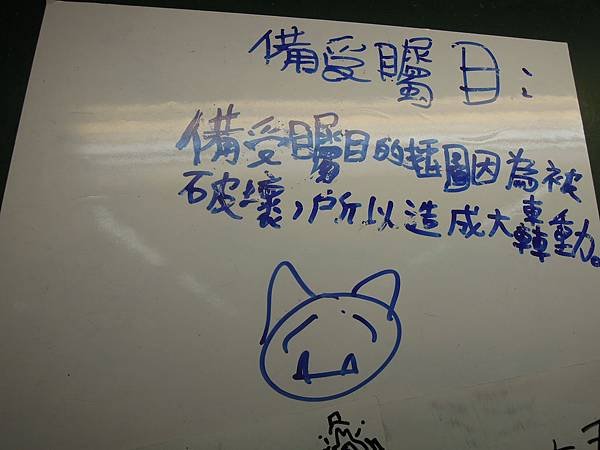 備受矚目:
備受矚目的插圖因為被
破壞,所以造成大轟動。